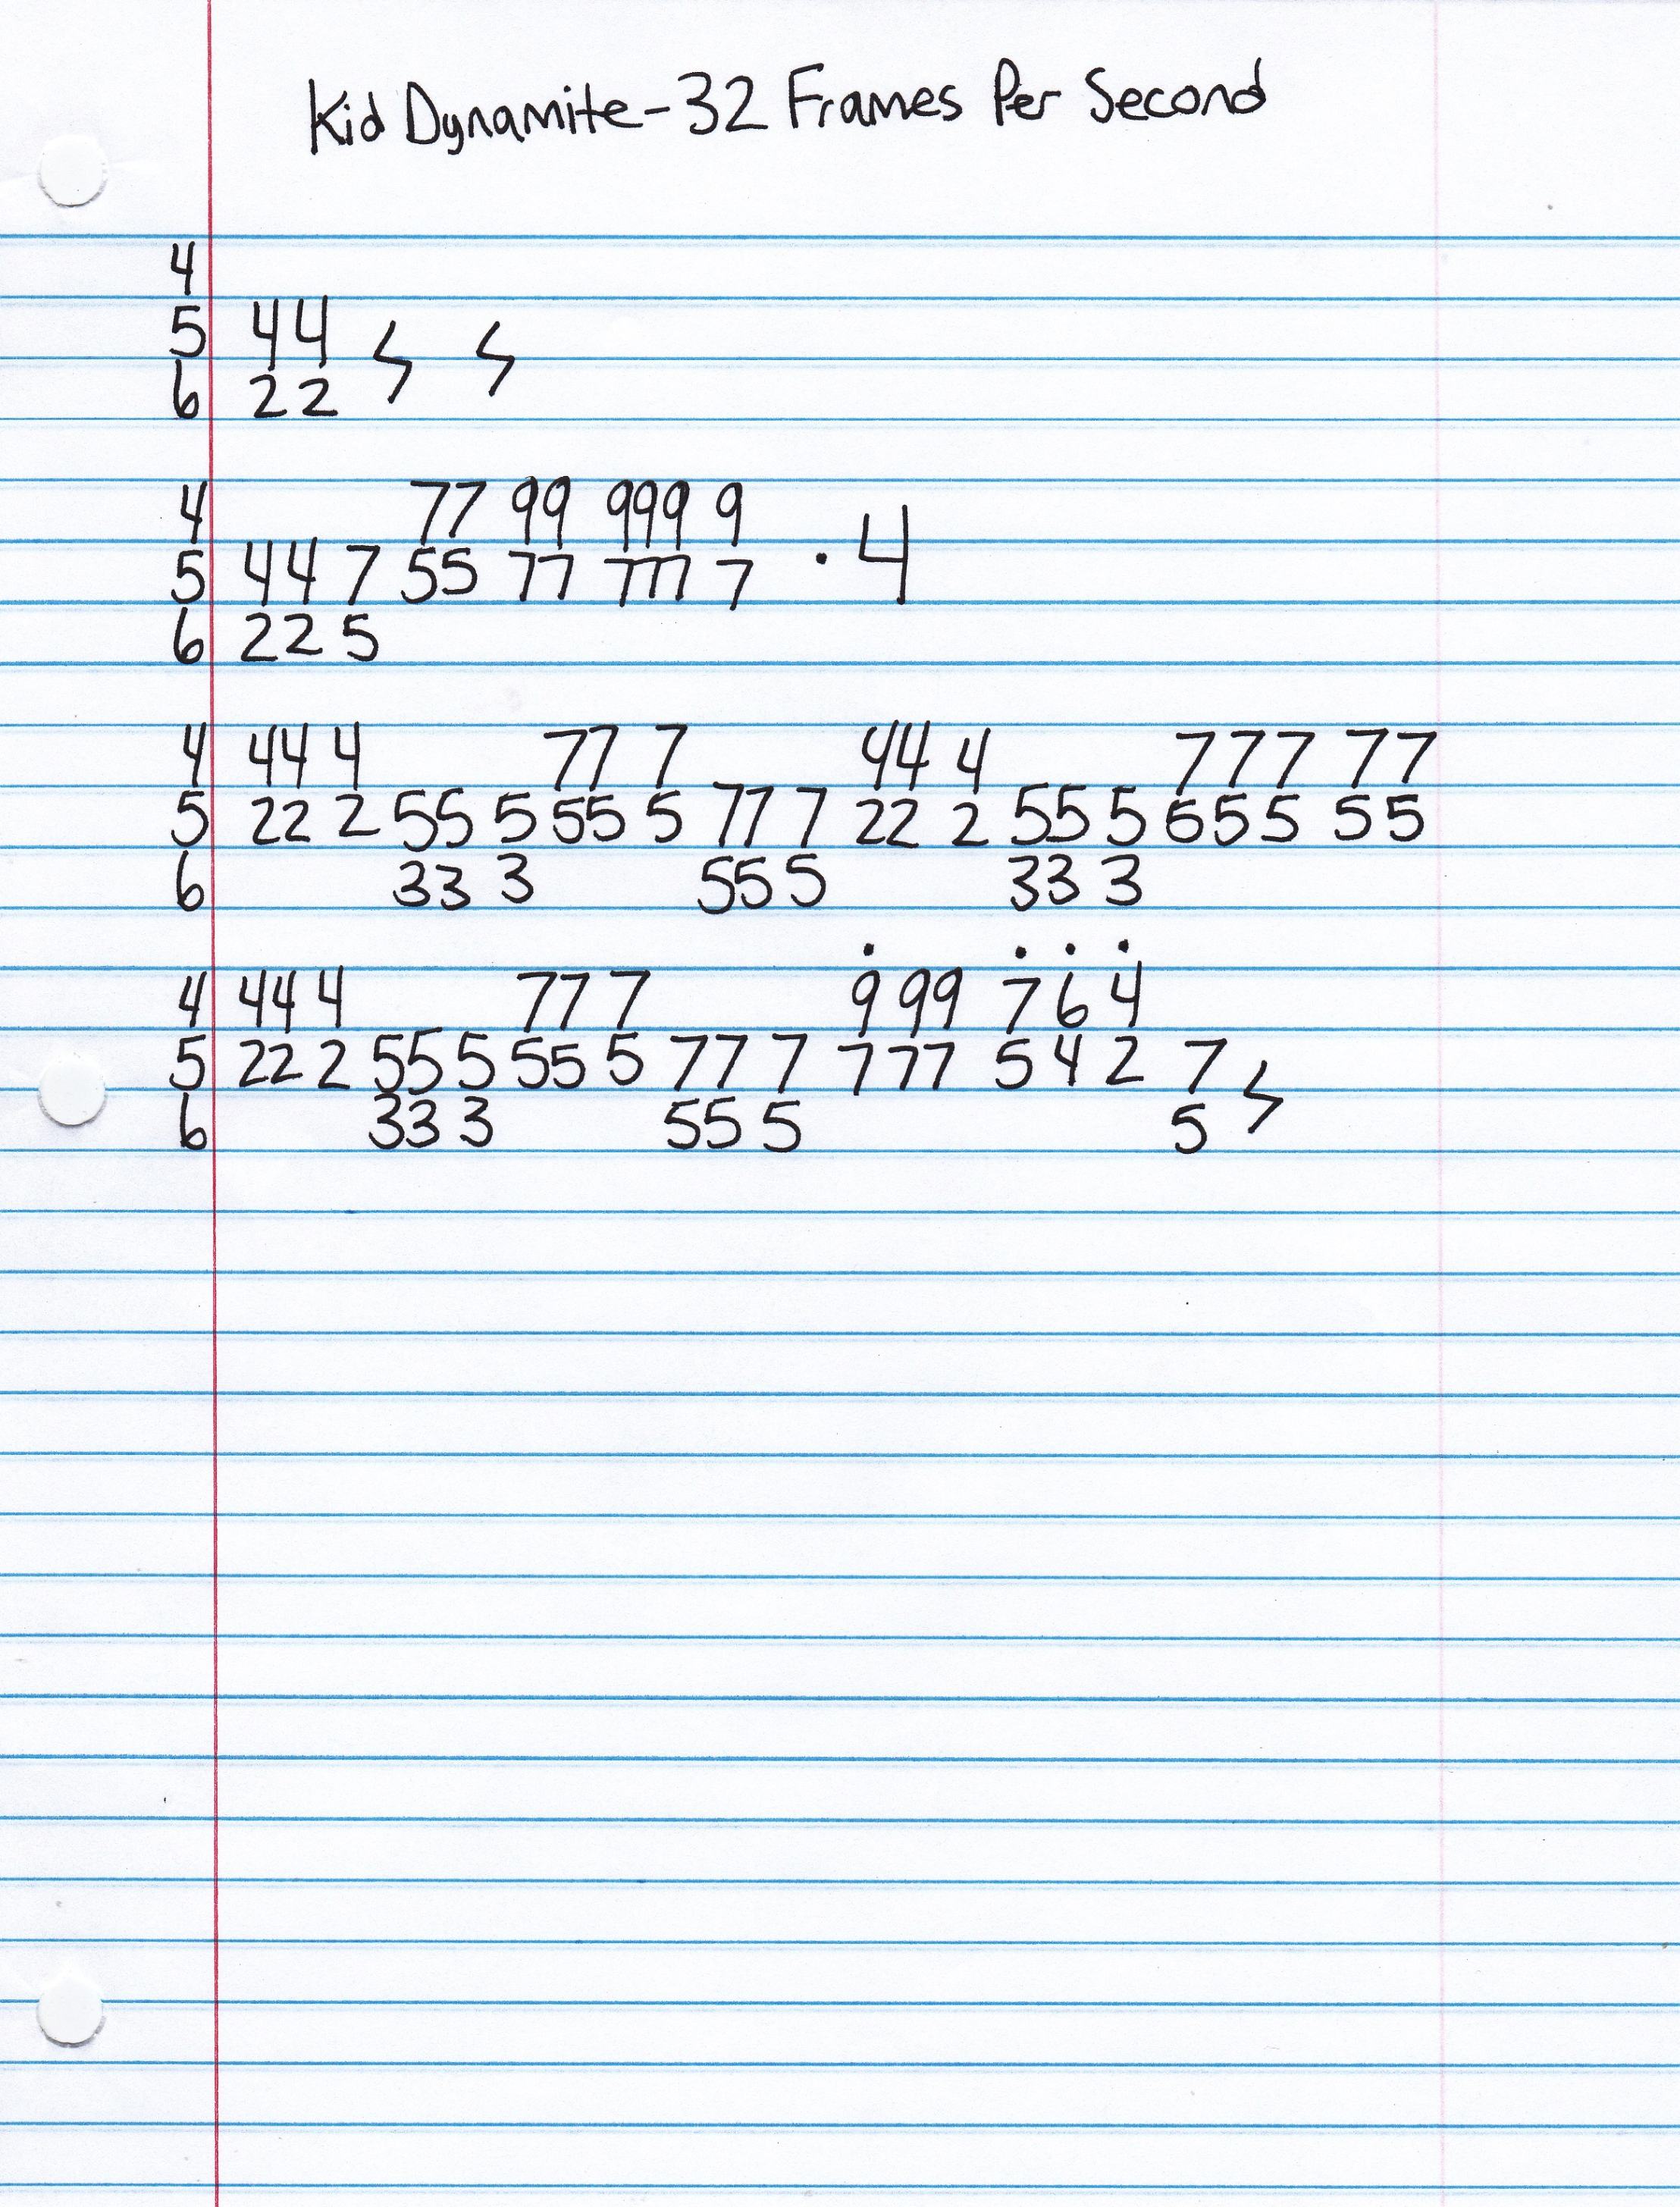 Kid Dynamite-32 Frames Per Second
4
5 44
6 22
4 77 99 999 9
5 447 55 77 777 7 · 4
6 22 5
4 44 4 77 7 44 4 777 77
5 22 2 55 5 55 5 77 7 22 2 55 5 655 55
6 33 3 55 5 33 3
4 44 4 77 7 9 99 7 6 4
5 22 2 55 5 55 5 77 7 7 77 5 4 2 7
6 33 3 55 5 5